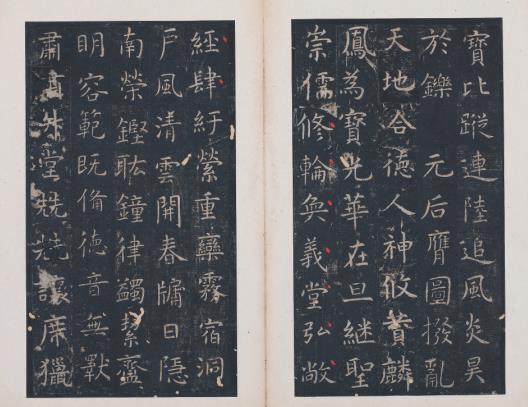 寶比蹤連陸追風炎昊
於鑠　元后膺圖撥亂
天地合德人神攸贊麟
鳳為寶光華在旦繼聖
崇儒修輪奐義堂弘敞
經肆紆縈重欒霧宿洞
戶風清雲開春牖日隱
南榮鏗耾鐘律蠲絜齋
明容範既備德音無斁
肅肅升堂兟兟讓席獵